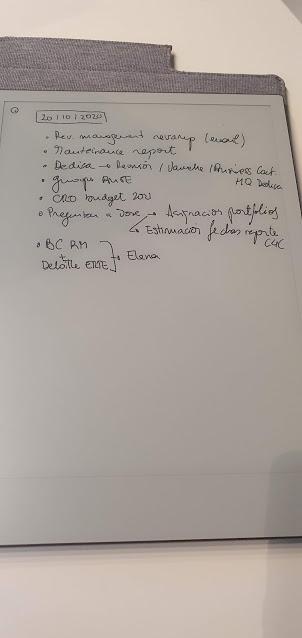 20/10/2020
• Rev. management revamp (email)
• Maintenance report
• Dedica → Reunión / / Business Cat.
HQ Dedica
• groups
• CRO budget 2021
• Preguntar a Jose → Asignación portfolios
→ Estimación fechas reporte
C&C
• BC RM
+
Deloitte ERTE } → Elena